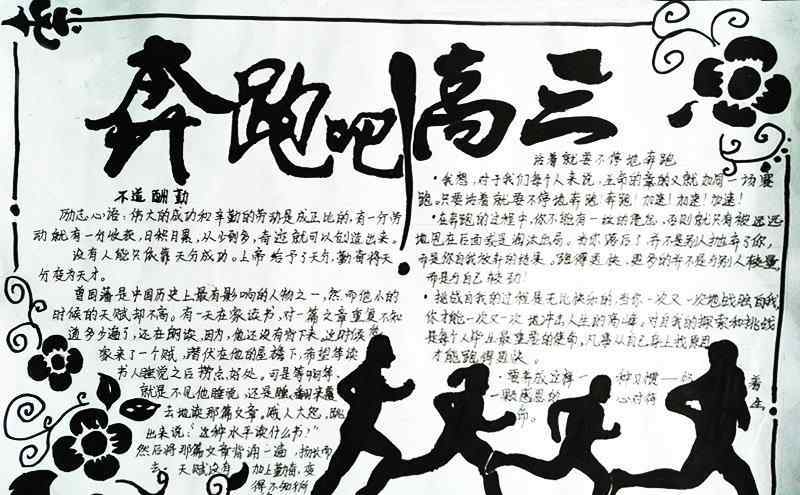 奔跑吧!高三
天道酬勤
励志心语：伟大的成功和辛勤的劳动是成正比的，有一分劳
动就有一分收获，日积月累，从少到多，奇迹就可以创造出来。
没有人能只依靠天分成功。上帝给予了天分，勤奋将天
分变为天才。
曾国藩是中国历史上最有影响的人物之一，然而他小的
时候的天赋却不高。有一天在家读书，对一篇文章重复不知
道多少遍了，还在朗读，因为，他还没有背下来。这时候
家来了一个贼，潜伏在他的屋檐下，希望等读
书人睡觉之后捞点好处。可是等啊等，
就是不见他睡觉，还是翻来覆
去地读那篇文章。贼人大怒，跳
出来说：“这种水平读什么书？”
然后将那篇文章背诵一遍，扬长而
去。天赋没有 加上勤奋，变
得不知所
活着就要不停地奔跑
·我想，对于我们每个人来说，生命的意义就如同一场赛
跑。只要活着就要不停地奔跑 奔跑！加速！加速！加速！
·在奔跑的过程中，你不能有一丝的懈怠，否则就只有被远远
地甩在后面或是淘汰出局。当你落后了并不是别人抛弃了你，
而是你自我放弃的结果。跑得更快，更多的并不是与别人较量，
而是与自己较劲！
·挑战自我的过程是无比快乐的，当你一次又一次地战胜自我，
你才能一次又一次地冲击人生的高峰。对自我的探索和挑战
是每个人毕生最重要的使命。凡事从自己身上找原因
才能跑得更快。
·要养成这样一种习惯——
一颗感恩的 心对待
命。